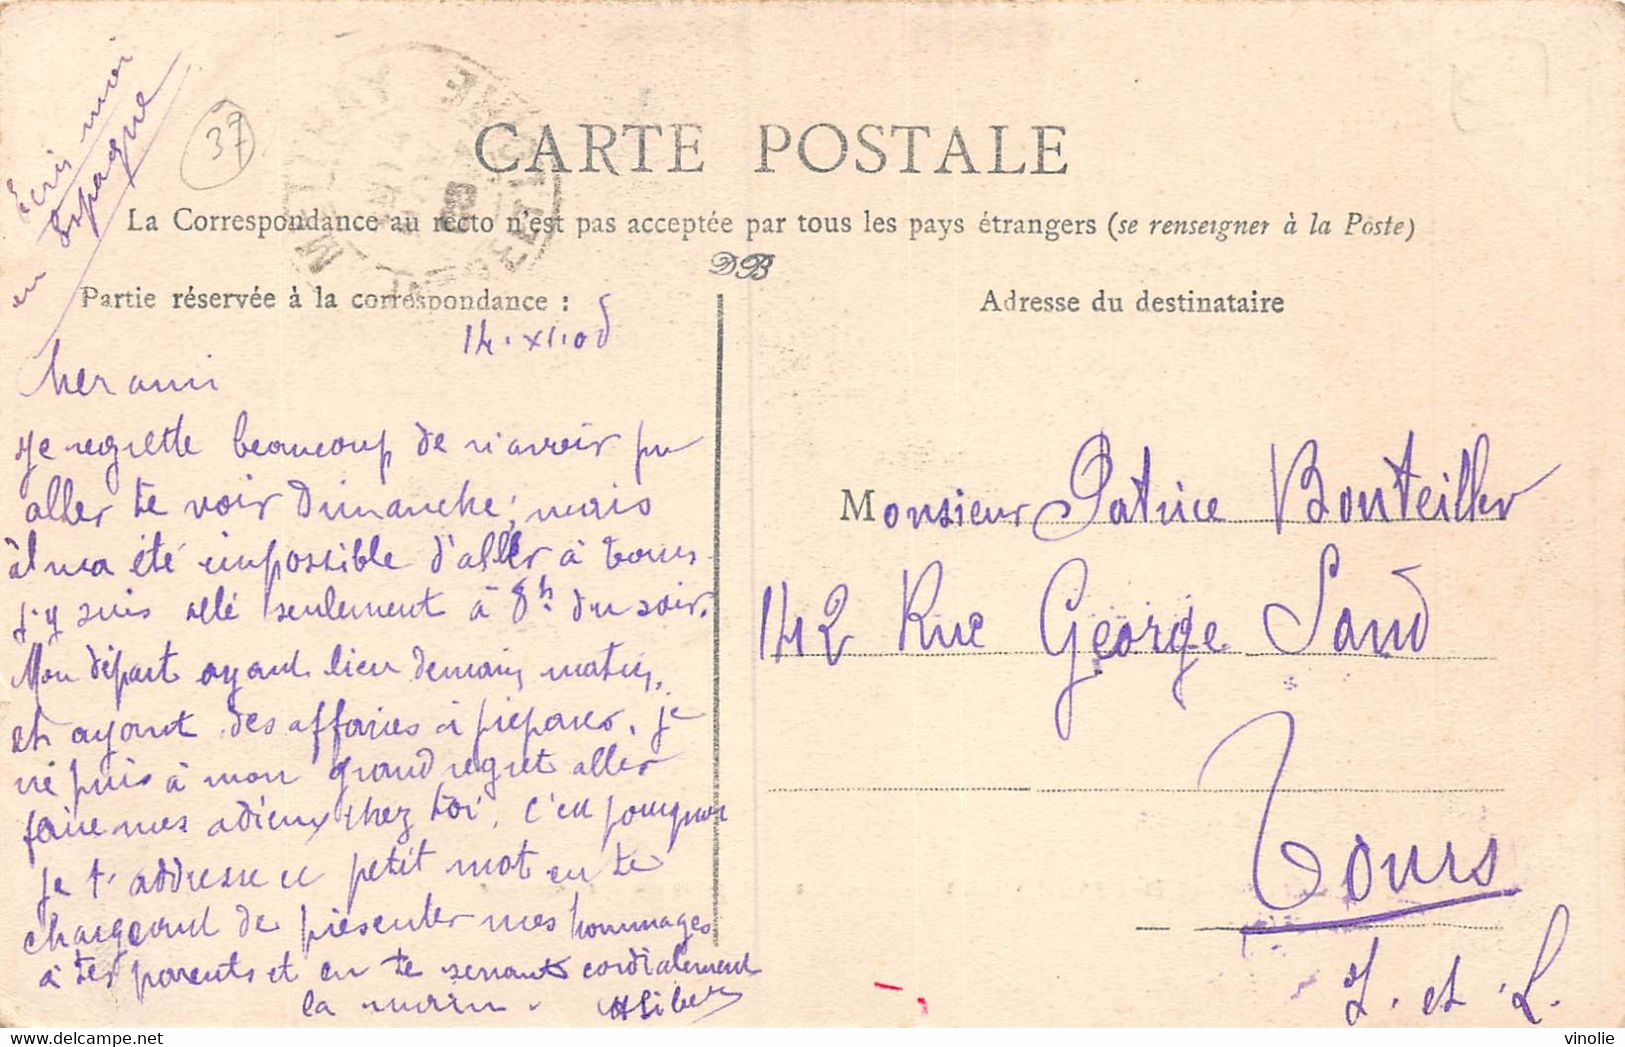 Écris moi
en Espagne
37
CARTE POSTALE
La Correspondance au recto n'est pas acceptée par tous les pays étrangers (se renseigner à la Poste)
DB
Partie réservée à la correspondance :
Adresse du destinataire
14.XI.05
Cher ami
Je regrette beaucoup de n'avoir pu
aller te voir Dimanche, mais
il m'a été impossible d'aller à Tours.
J'y suis allé seulement à 8h du soir.
Mon départ ayant lieu demain matin,
et ayant des affaires à préparer, je
ne puis à mon grand regret aller
faire mes adieux chez toi. C'est pourquoi
je t'addresse ce petit mot en te
chargeant de présenter mes hommages
à tes parents et en te serrant cordialement
la main.
Monsieur Patrice Bouteiller
142 Rue George Sand
Tours
I. et L.
vinolie